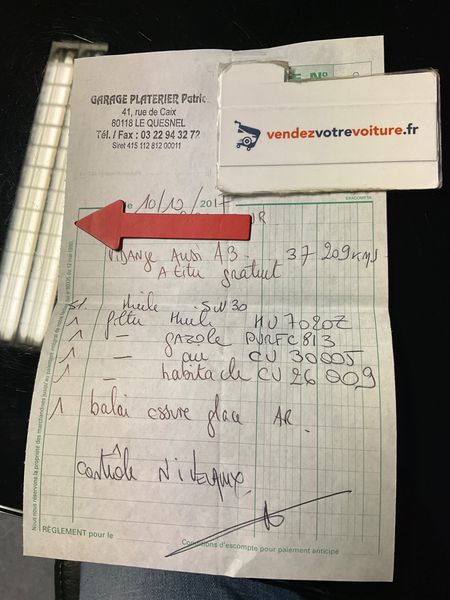 GARAGE PLATERIER Patric
41, rue de Caix
80118 LE QUESNEL
Tél. / Fax : 03 22 94 32 72
Siret 415 112 812 00011
N°
vendezvotrevoiture.fr
EXACOMPTA
le 10/12/2017
VIDANGE Audi A3 37 209 KMS
A titre gratuit
5L Huile 5W30
1 filtre Huile HU7020Z
1 — gazole PURFC813
1 — air CU 30005
1 — habitacle CU 26 009
1 balai essuie glace AR.
Contrôle NIVEAUX
RÈGLEMENT pour le
Conditions d'escompte pour paiement anticipé
Nous nous réservons la propriété des marchandises jusqu'au paiement intégral de